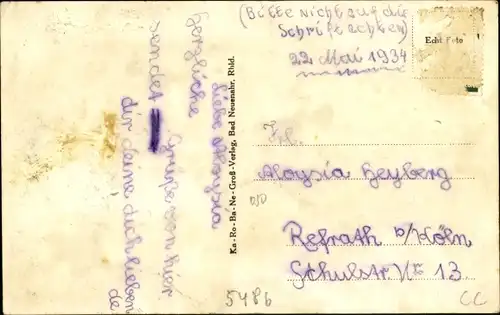 (Bitte nicht auf die
Schrift achten)
22 Mai 1934
Echt Foto
Liebe Aloysia
Herzliche
Grüße von hier
sendet
dir deine dich lieben
de
Ka-Ro-Ba-Ne-Groß-Verlag, Bad Neuenahr, Rhld.
Frl.
Aloysia Heyberg
Refrath b/Köln
Schulstr No 13
5486
CC